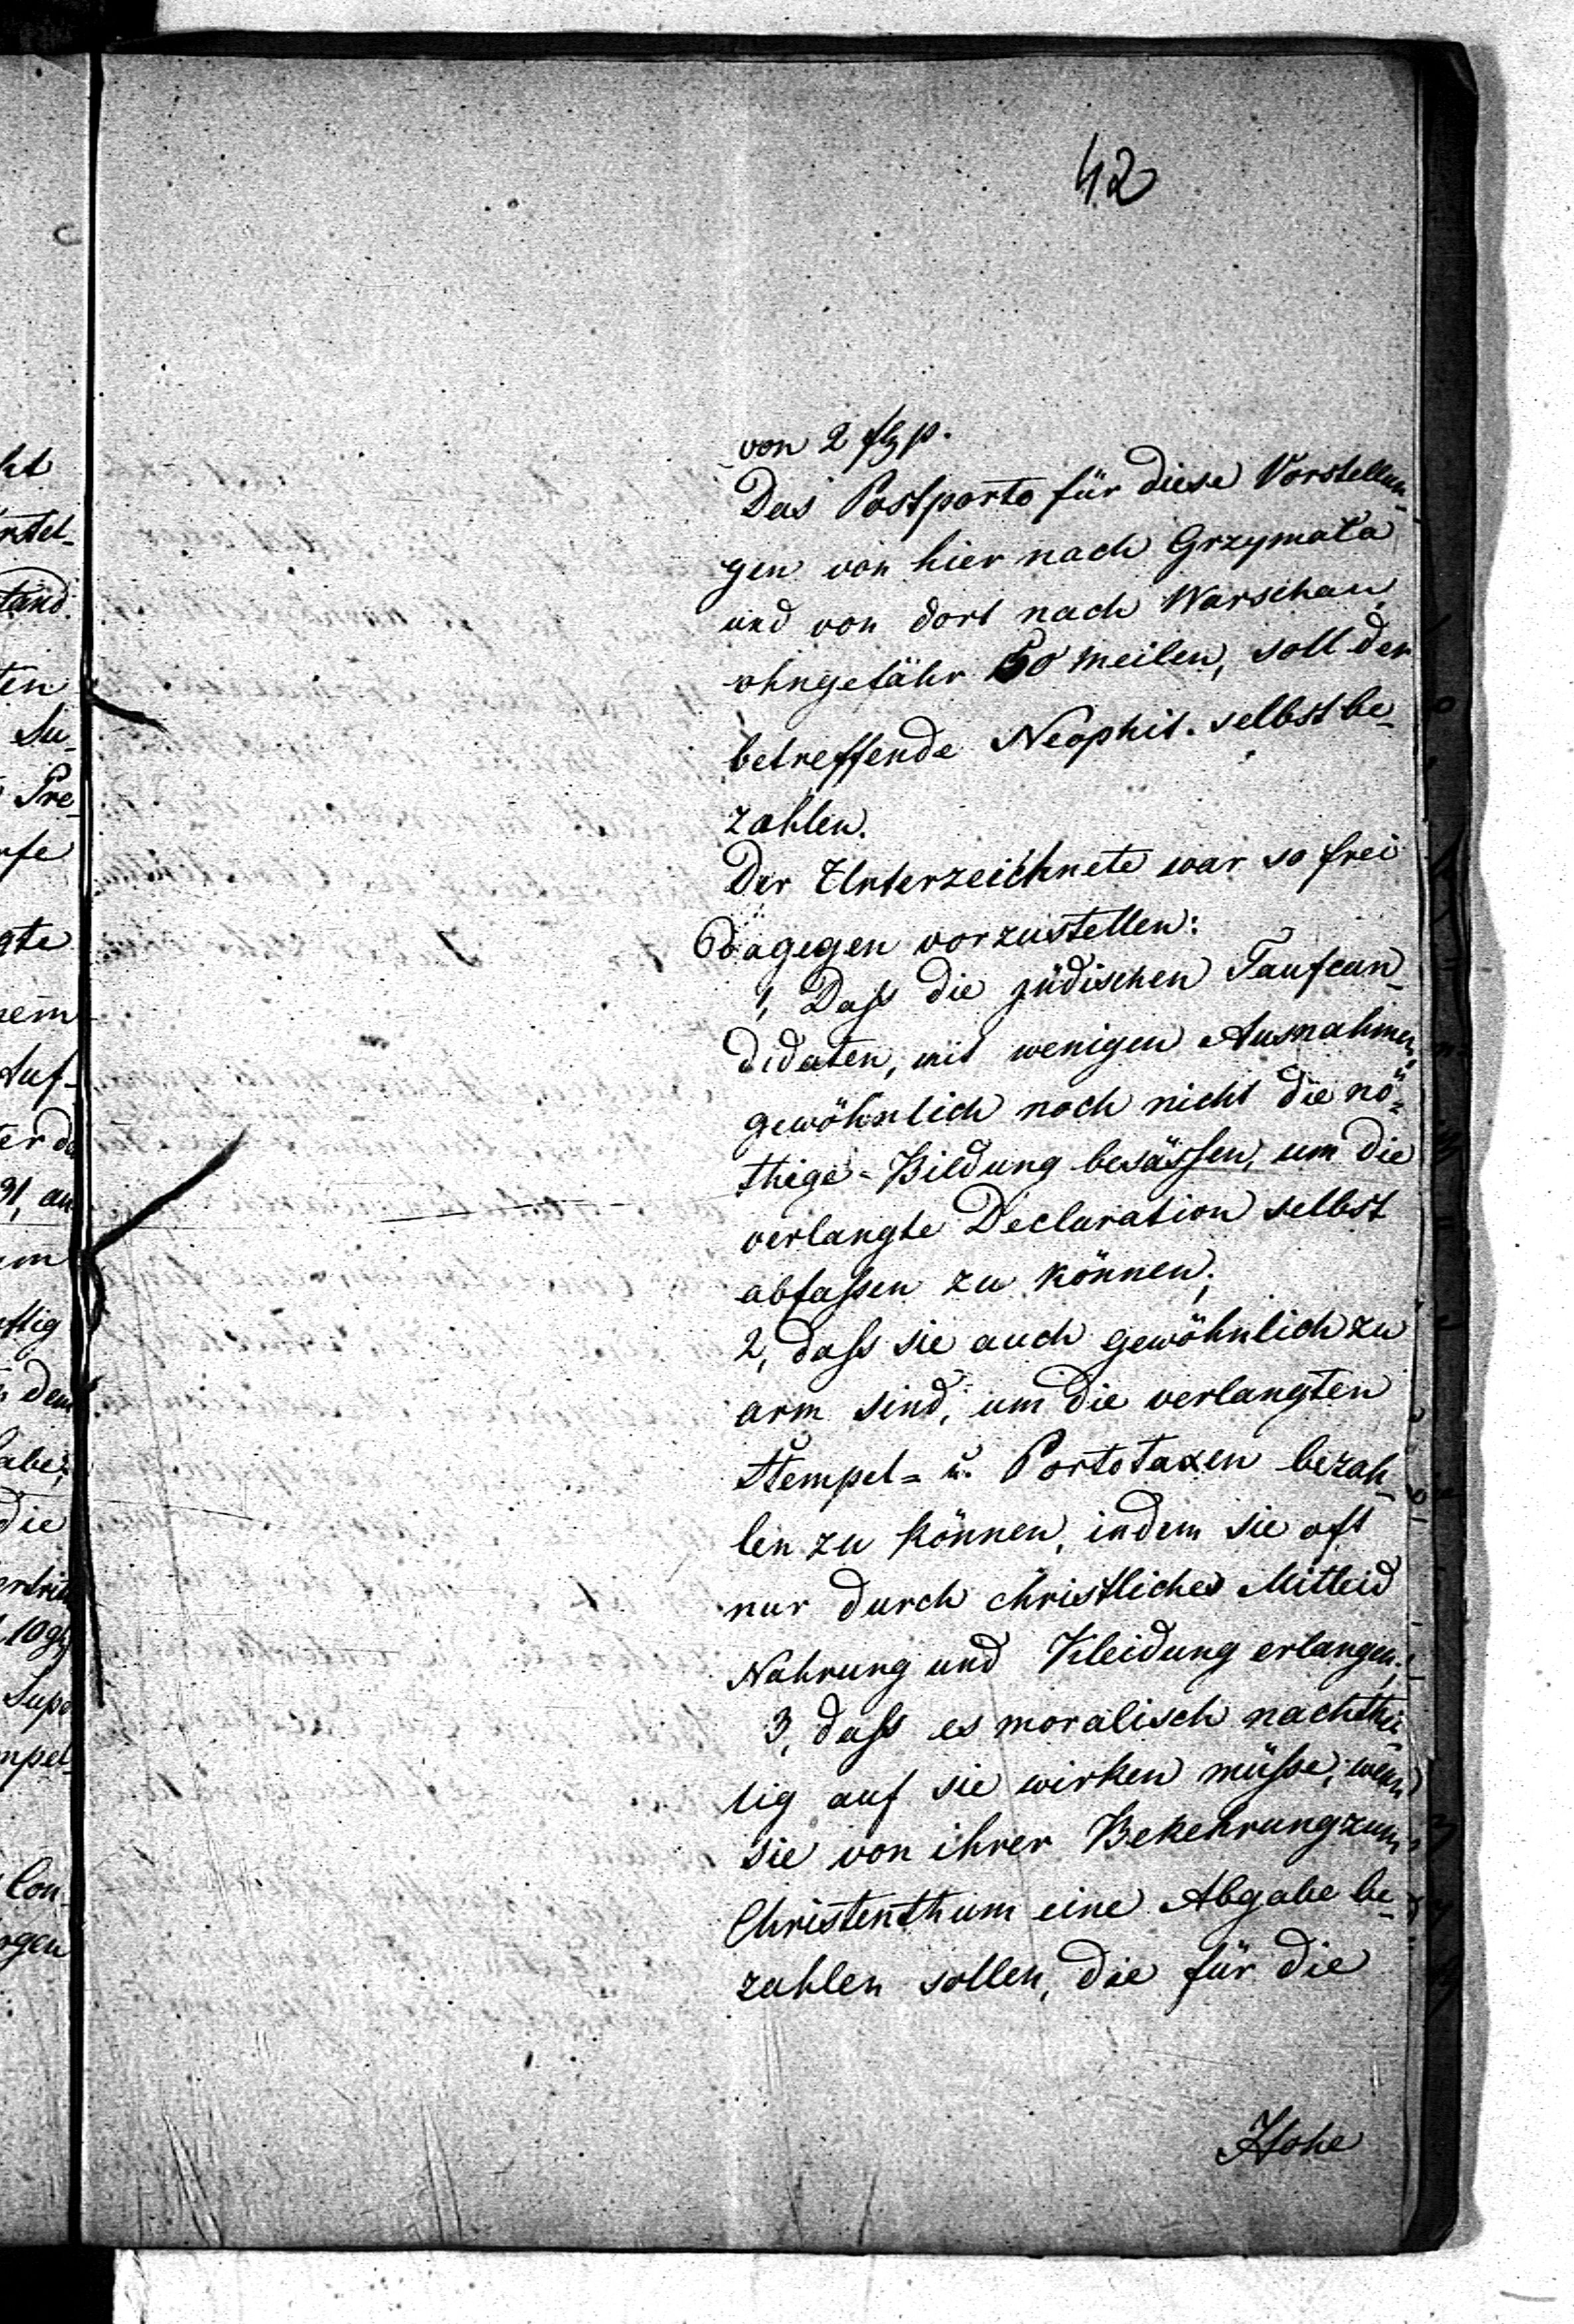 42
von 2 flp.
Das Postporto für diese Vorstellun-
gen von hier nach Grzymała
und von dort nach Warschau,
ohngefähr 50 meilen, soll der
betreffende Neophit. selbst be-
zahlen.
Der Unterzeichnete war so frei
dagegen vorzustellen:
1, Dass die jüdischen Taufcan-
didaten, mit wenigen Ausnahmen,
gewöhnlich noch nicht die nö-
thige Bildung besässen, um die
verlangte Declaration selbst
abfassen zu können;
2, dass sie auch gewöhnlich zu
arm sind, um die verlangten
Stempel- u. Portotaxen bezah-
len zu können, indem sie oft
nur durch christliches Mitleid
Nahrung und Kleidung erlangen;
3, dass es moralisch nachthei-
lig auf sie wirken müsse, wenn
sie von ihrer Bekehrung zum
Christenthum eine Abgabe be-
zahlen sollen, die für die
Hohe